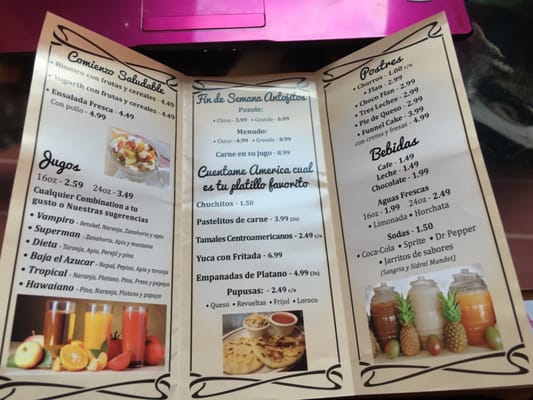 Comienzo Saludable
• Bionico con frutas y cereales - 4.49
• Yogurth con frutas y cereales - 4.49
• Ensalada Fresca - 4.49
Con pollo - 4.99
Jugos
16oz - 2.59 24oz - 3.49
Cualquier Combination a tu
gusto o Nuestras sugerencias
• Vampiro - Betabel, Naranja, Zanahoria y apio
• Superman - Zanahoria, Apio y manzana
• Dieta - Toronja, Apio, Perejil y pina
• Baja el Azucar - Nopal, Pepino, Apio y toronja
• Tropical - Naranja, Platano, Pina, Fresa y papaya
• Hawaiano - Pina, Naranja, Platano y papaya
Fin de Semana Antojitos
Pozole:
• Chico - 3.99 • Grande - 6.99
Menudo:
• Chico - 4.99 • Grande - 8.99
Carne en su jugo - 8.99
Cuentame America cual
es tu platillo favorito
Chuchitos - 1.50
Pastelitos de carne - 3.99 (3x)
Tamales Centroamericanos - 2.49 c/u
Yuca con Fritada - 6.99
Empanadas de Platano - 4.99 (3x)
Pupusas: - 2.49 c/u
• Queso • Revueltas • Frijol • Loroco
Postres
• Churros - 1.00 c/u
• Flan - 2.99
• Choco Flan - 2.99
• Tres Leches - 2.99
• Pie de Queso - 2.99
• Funnel Cake - 3.99
con crema y fresas - 4.99
Bebidas
Cafe - 1.49
Leche - 1.49
Chocolate - 1.99
Aguas Frescas
16oz - 1.99 24oz - 2.49
• Limonada • Horchata
Sodas - 1.50
• Coca-Cola • Sprite • Dr Pepper
• Jarritos de sabores
(Sangria y Sidral Mundet)